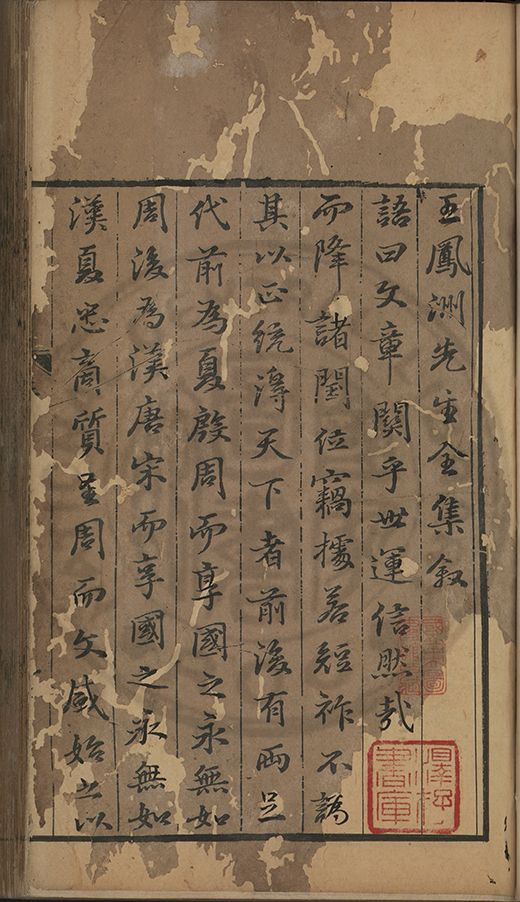 王鳳洲先生全集叙
語曰文章關乎世運信然哉
而降諸閏位竊據若短祚不
其以正統得天下者前後有兩
代前為夏殷周而享國之永無如
周後為漢唐宋而享國之永無如
漢夏忠商質至周而文盛始之以
澤存
書庫